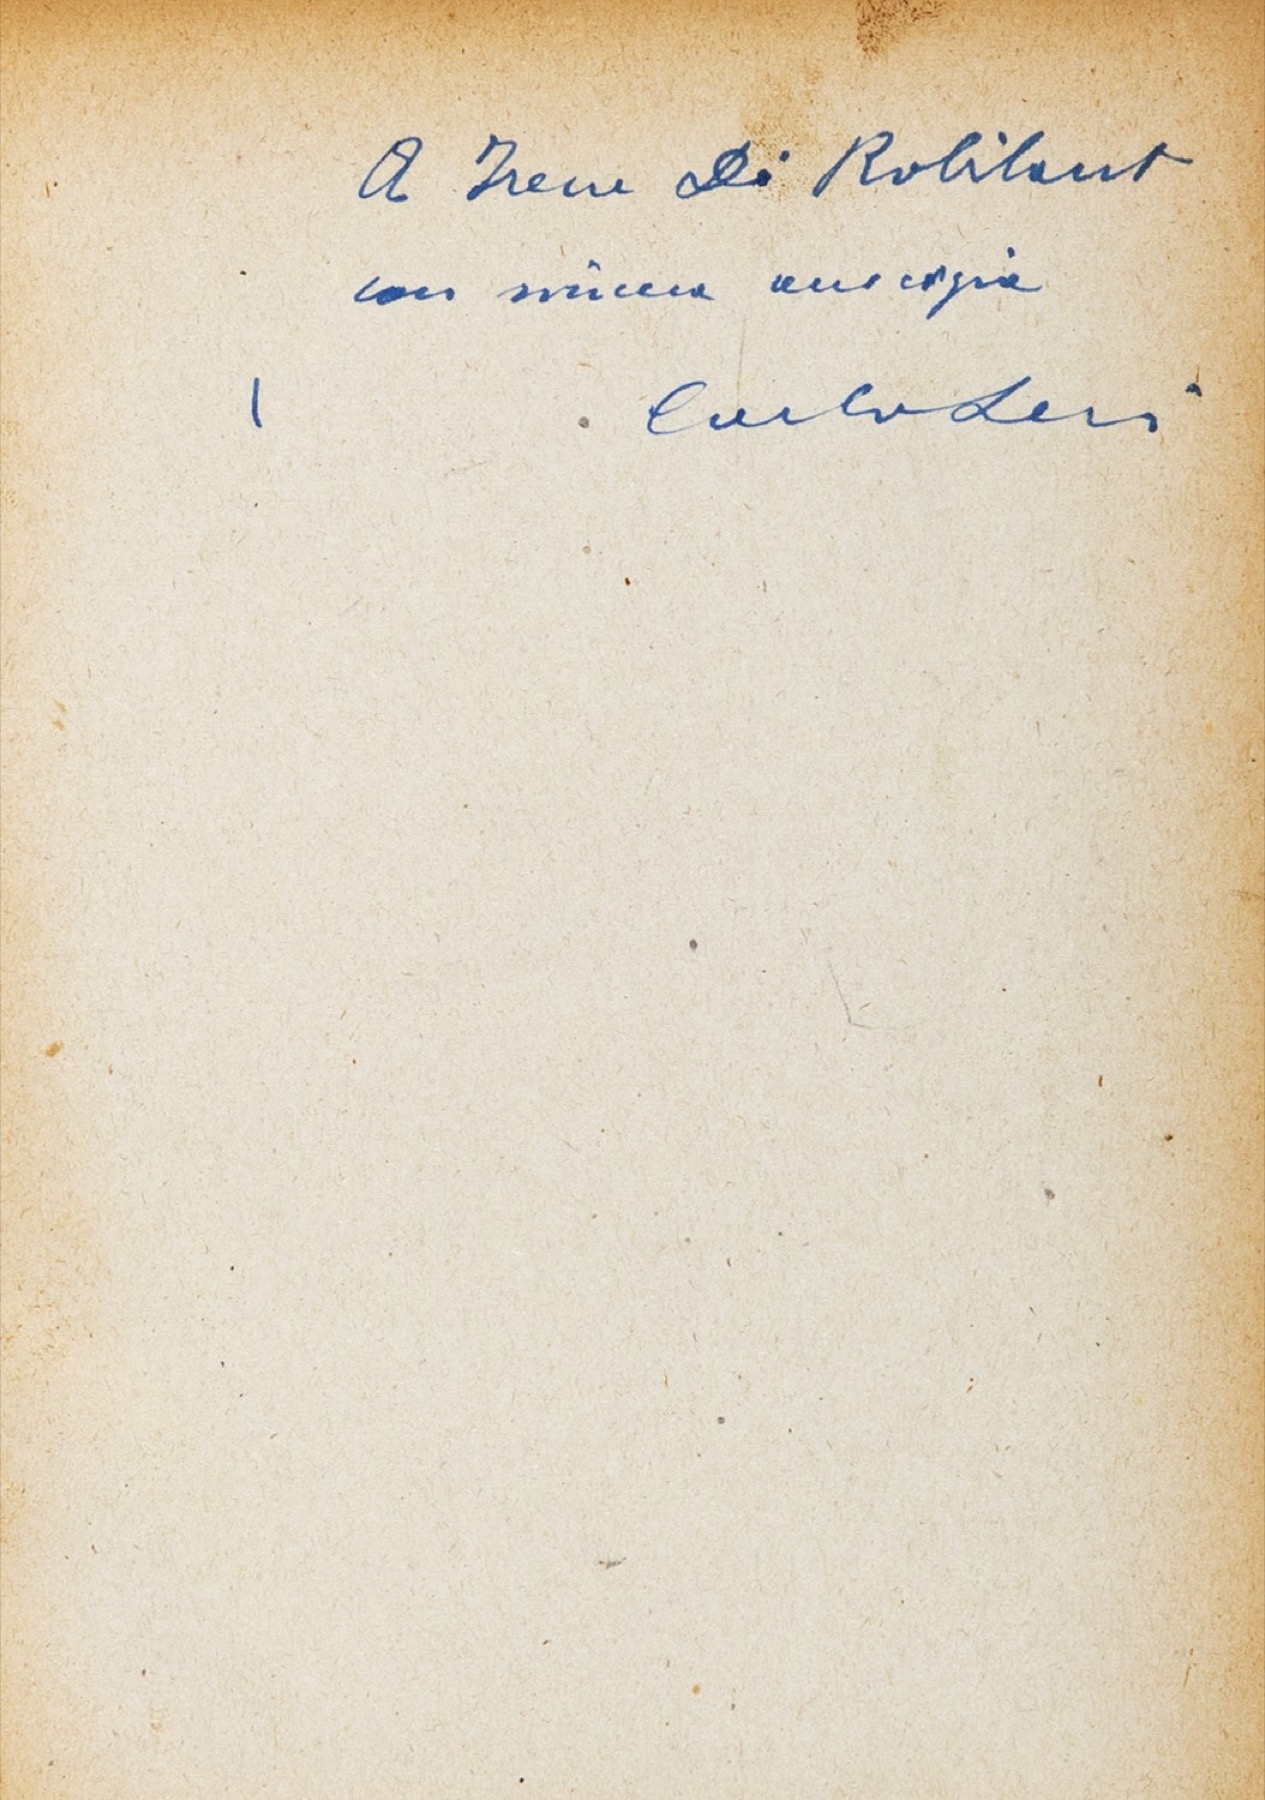 A Irene Di Robilant
con sincera amicizia
Carlo Levi